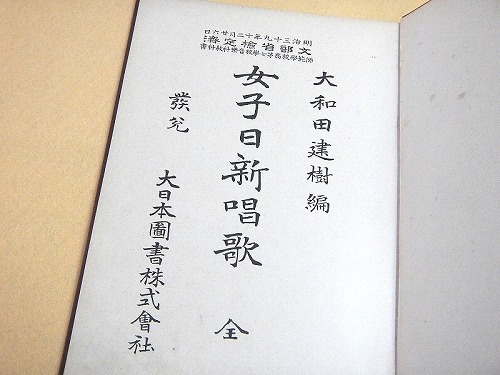 明治三十九年十二月廿六日
文部省檢定濟
師範學校高等女學校音樂科敎科書
大和田建樹編
女子日新唱歌 全
發兌 大日本圖書株式會社